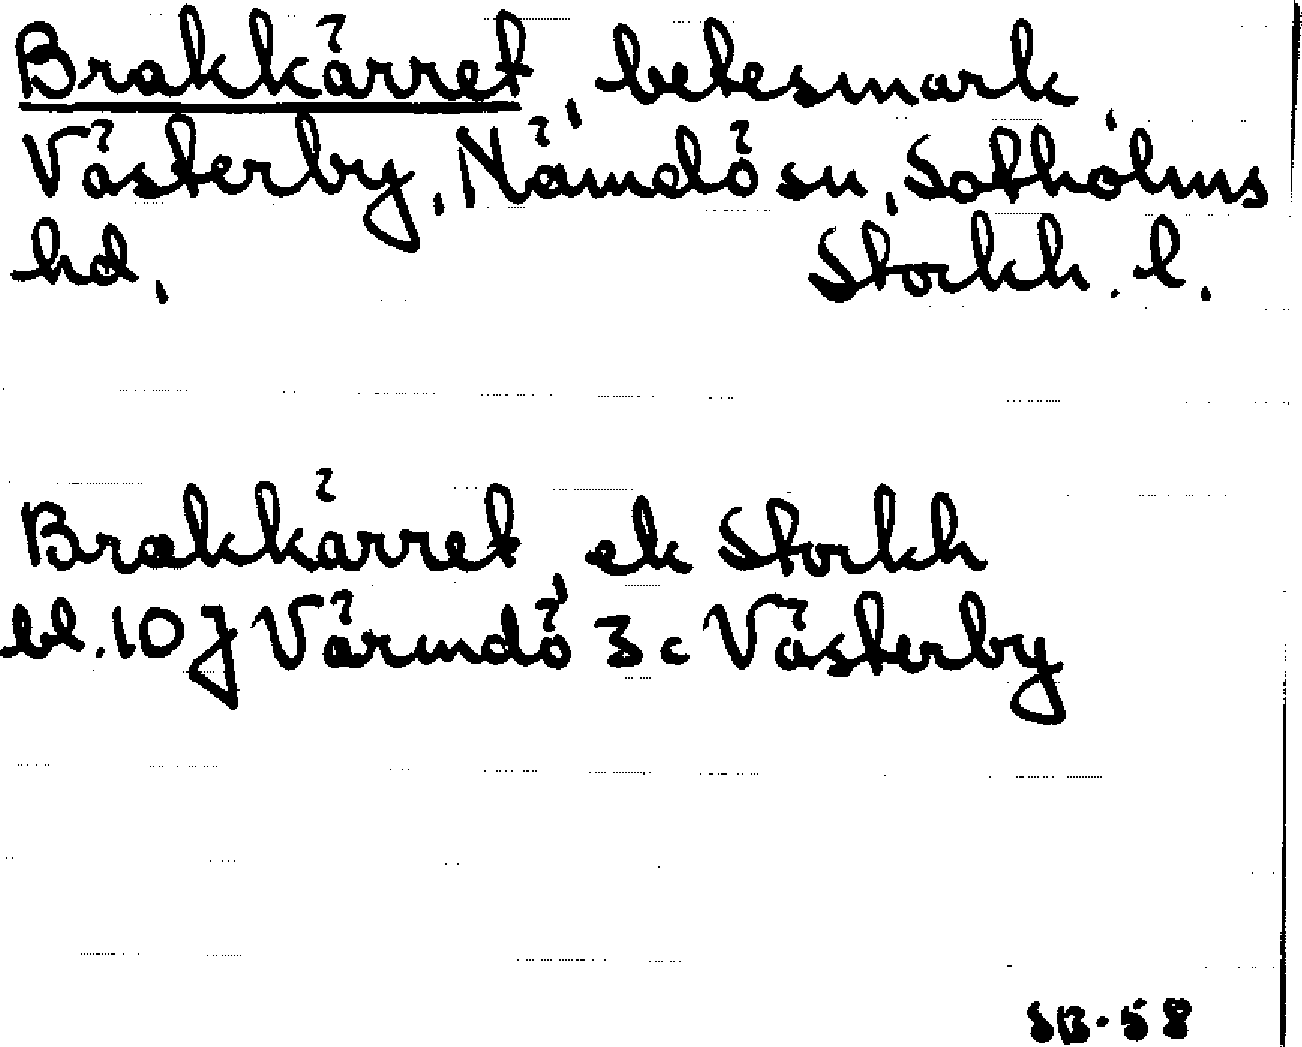 Brakkärret, betesmark,
Västerby, Nämdö sn, Sotholms
hd, Stockh. l.
Brakkärret, ek Stockh
bl. 10 J Värmdö 3c Västerby
SB-58